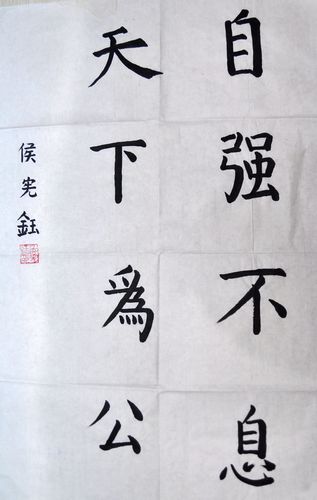 自强不息
天下為公
侯宪鈺